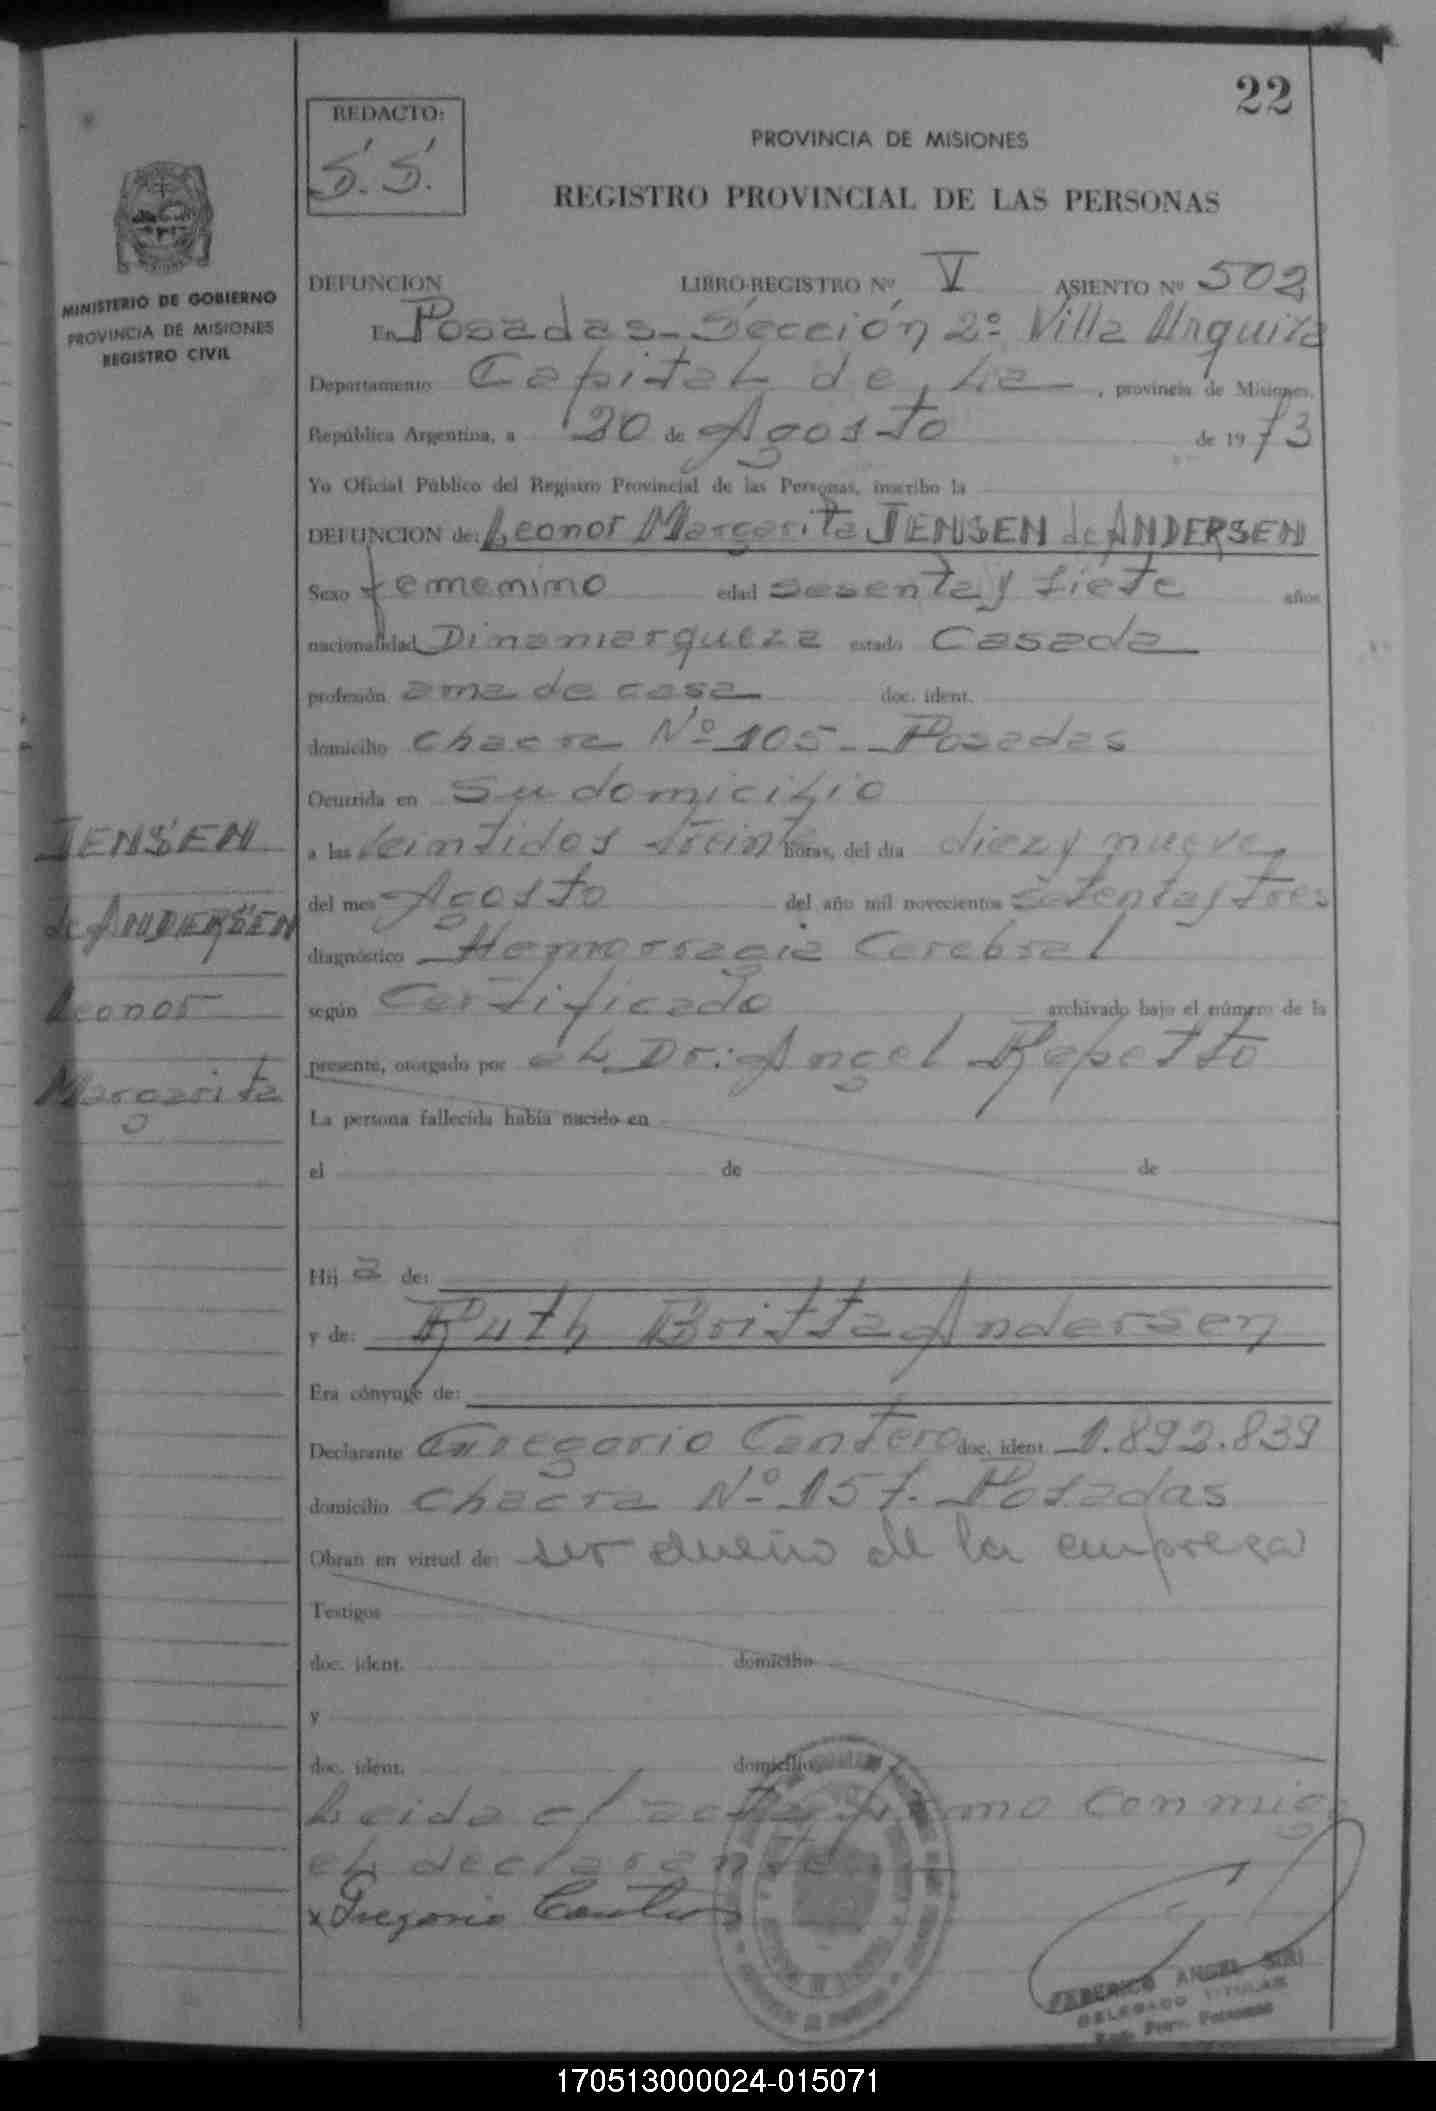 22
REDACTO:
S. S.
PROVINCIA DE MISIONES
REGISTRO PROVINCIAL DE LAS PERSONAS
MINISTERIO DE GOBIERNO
PROVINCIA DE MISIONES
REGISTRO CIVIL
DEFUNCION LIBRO-REGISTRO Nº V ASIENTO Nº 502
En Posadas - Sección 2º Villa Urquiza
Departamento Capital de La, provincia de Misiones,
República Argentina, a 20 de Agosto de 1973
Yo Oficial Público del Registro Provincial de las Personas, inscribo la
DEFUNCION de: Leonor Margarita JENSEN de ANDERSEN
Sexo femenino edad sesenta y siete años
nacionalidad Dinamarqueza estado Casada
profesión ama de casa doc. ident.
domicilio chacra Nº 105 - Posadas
Ocurrida en su domicilio
a las veintidos treinta horas, del día diez y nueve
del mes Agosto del año mil novecientos setenta y tres
diagnóstico Hemorragia Cerebral
según Certificado archivado bajo el número de la
presente, otorgado por el Dr: Angel Repetto
La persona fallecida había nacido en
el de de
Hij a de:
y de: Ruth Britta Andersen
Era cónyuge de:
Declarante Gregorio Cantero doc. ident. 1.892.839
domicilio chacra Nº 157. Posadas
Obran en virtud de: ser dueño de la empresa
Testigos
doc. ident. domicilio
y
doc. ident. domicilio
Leida el acta firmo conmigo
el declarante.
x Gregorio Cantero
JENSEN
de ANDERSEN
Leonor
Margarita
FEDERICO ANGEL
DELEGADO TITULAR
Reg. Prov. Personas
170513000024-015071